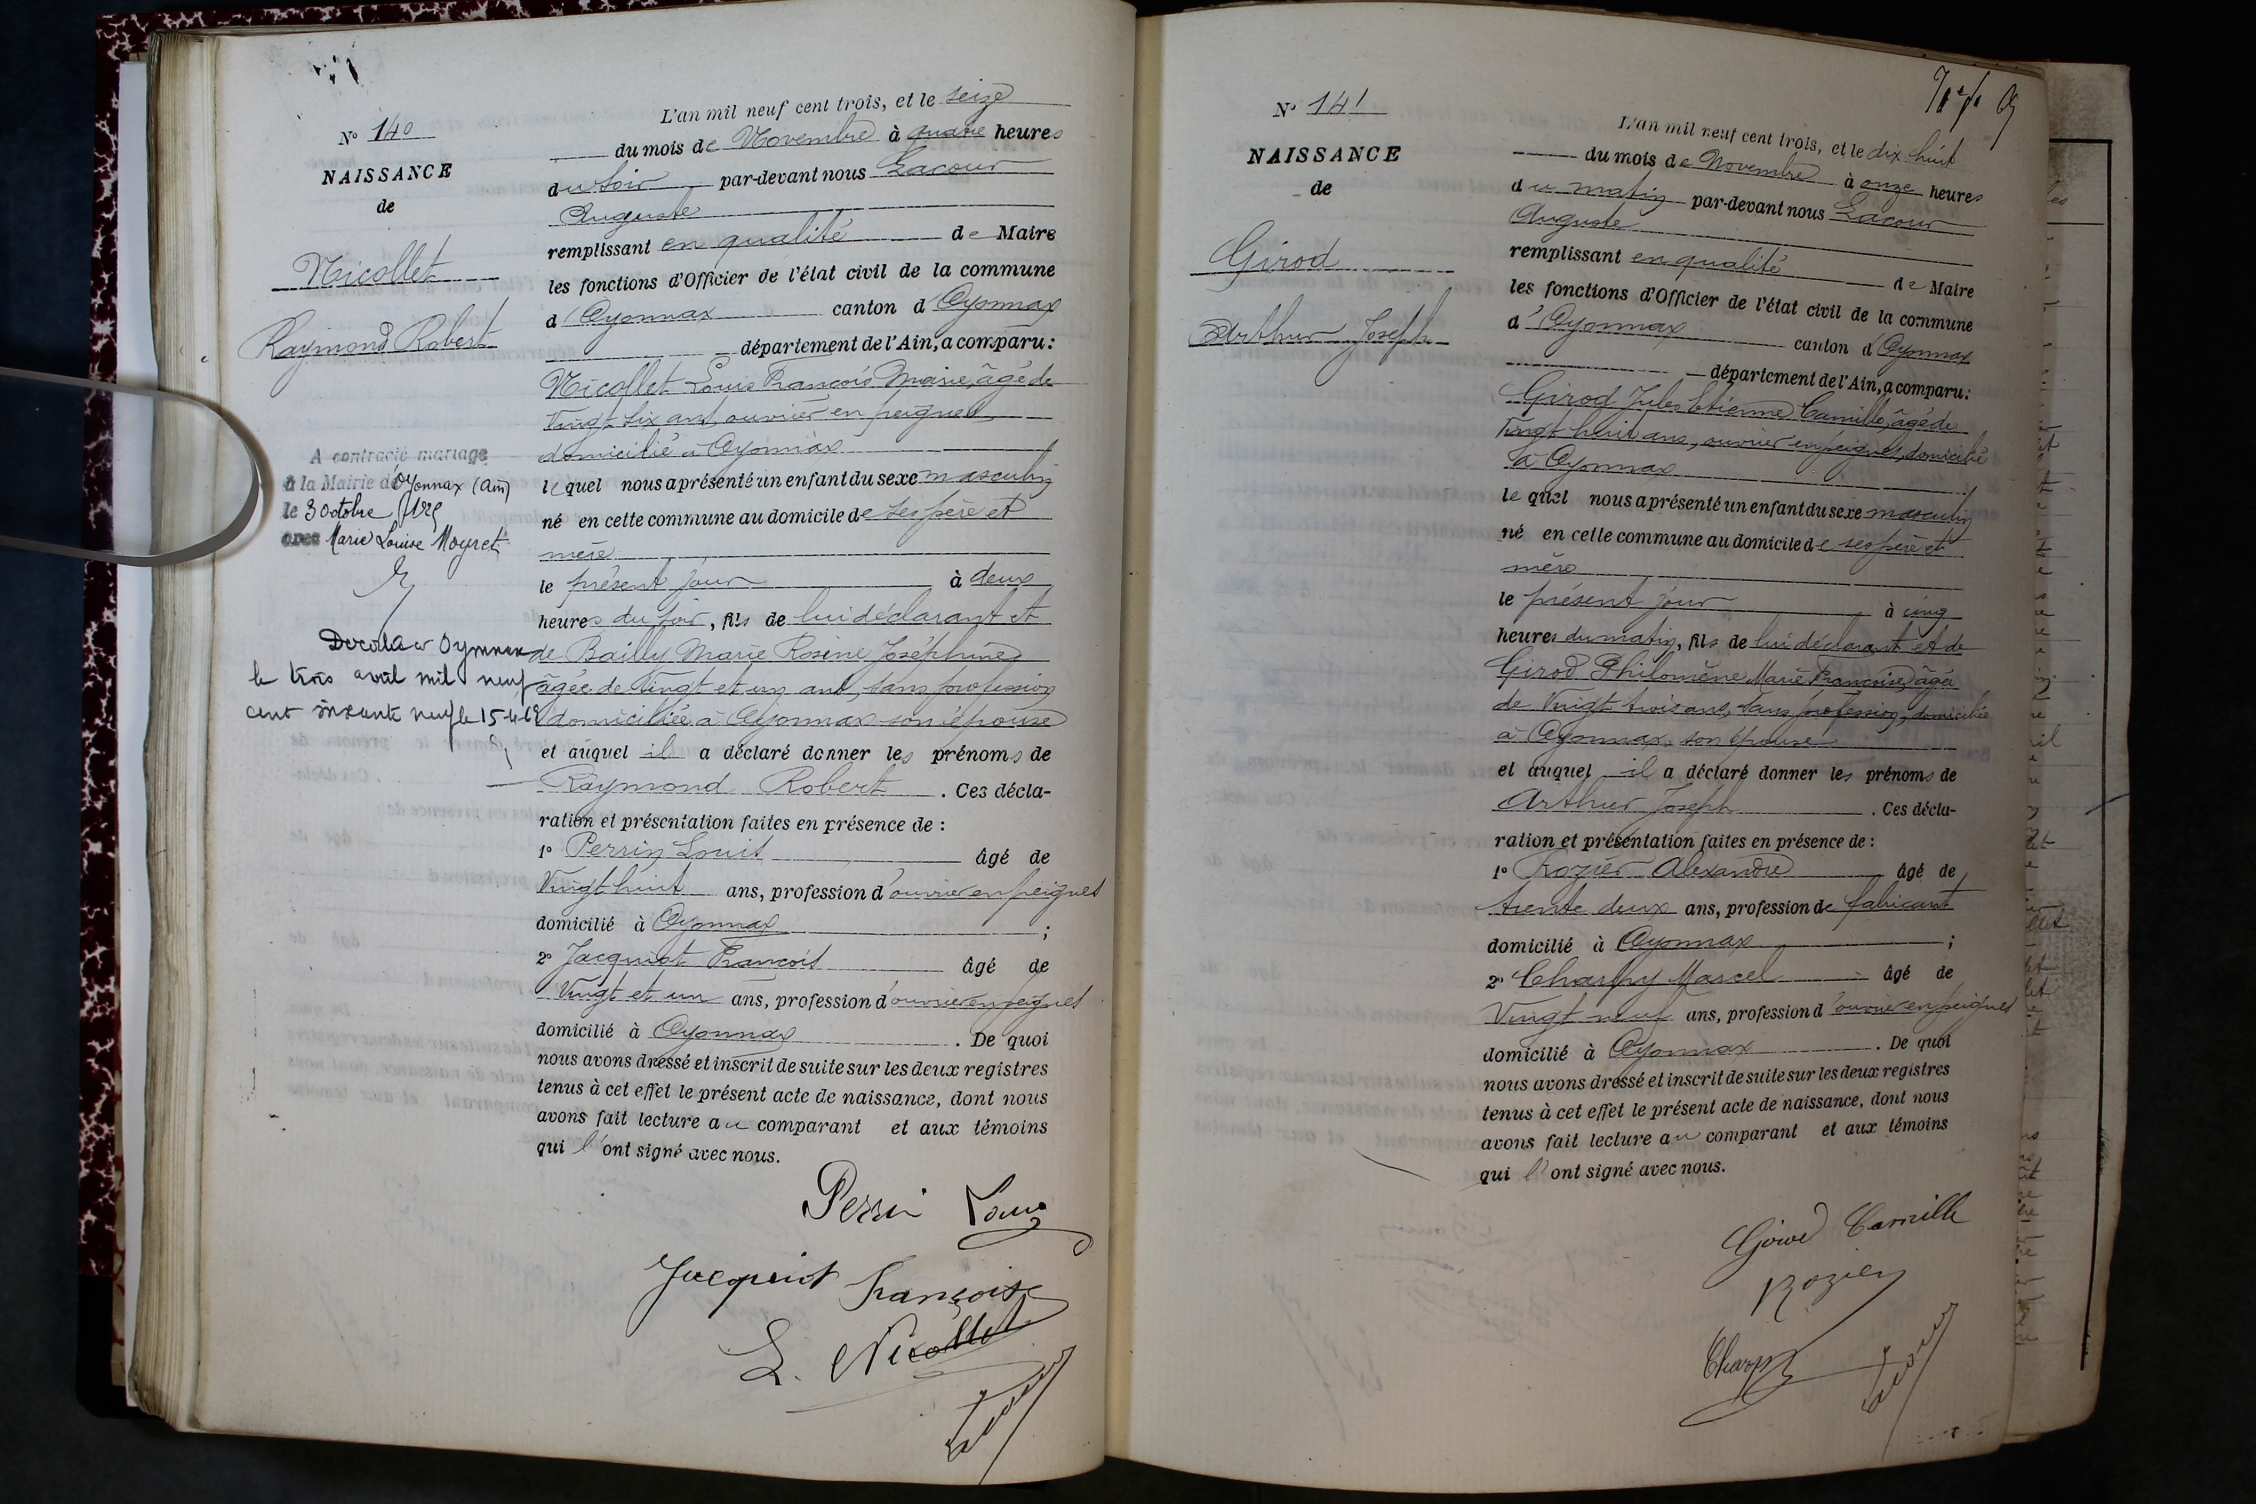 N° 140
NAISSANCE
de
Nicollet
Raymond Robert
A contracté mariage
à la Mairie d'Oyonnax (Ain)
le 3 Octobre 1925
avec Marie Louise Moyret
Décédé à Oyonnax
le trois avril mil neuf
cent soixante neuf le 15-4-69
L'an mil neuf cent trois, et le seize
du mois de Novembre à quatre heures
du soir par-devant nous Lacour
Auguste
remplissant en qualité de Maire
les fonctions d'Officier de l'état civil de la commune
d'Oyonnax canton d'Oyonnax
département de l'Ain, a comparu :
Nicollet Louis François Marie, âgé de
Vingt six ans, ouvrier en peignes
domicilié à Oyonnax
lequel nous a présenté un enfant du sexe masculin
né en cette commune au domicile de ses père et
mère
le présent jour à deux
heures du soir, fils de lui déclarant et
de Bailly Marie Rosine Joséphine
âgée de vingt et un ans, sans profession
domiciliée à Oyonnax son épouse
et auquel il a déclaré donner les prénoms de
Raymond Robert. Ces décla-
ration et présentation faites en présence de :
1° Perrin Louis âgé de
Vingt huit ans, profession d'ouvrier en peignes
domicilié à Oyonnax ;
2° Jacquiot François âgé de
Vingt et un ans, profession d'ouvrier en peignes
domicilié à Oyonnax. De quoi
nous avons dressé et inscrit de suite sur les deux registres
tenus à cet effet le présent acte de naissance, dont nous
avons fait lecture au comparant et aux témoins
qui l'ont signé avec nous.
Perrin Louis
Jacquiot François
L. Nicollet
Lacour
N° 141
NAISSANCE
de
Girod
Arthur Joseph
L'an mil neuf cent trois, et le dix huit
du mois de Novembre à onze heures
du matin par-devant nous Lacour
Auguste
remplissant en qualité de Maire
les fonctions d'Officier de l'état civil de la commune
d'Oyonnax canton d'Oyonnax
département de l'Ain, a comparu :
Girod Jules Etienne Camille, âgé de
Vingt huit ans, ouvrier en peignes, domicilié
à Oyonnax
lequel nous a présenté un enfant du sexe masculin
né en cette commune au domicile de ses père et
mère
le présent jour à cinq
heures du matin, fils de lui déclarant et de
Girod Philomène Marie Françoise, âgée
de Vingt trois ans, sans profession, domiciliée
à Oyonnax, son épouse
et auquel il a déclaré donner les prénoms de
Arthur Joseph. Ces décla-
ration et présentation faites en présence de :
1° Rozier Alexandre âgé de
trente deux ans, profession de fabricant
domicilié à Oyonnax ;
2° Charpy Marcel âgé de
Vingt neuf ans, profession d'ouvrier en peignes
domicilié à Oyonnax. De quoi
nous avons dressé et inscrit de suite sur les deux registres
tenus à cet effet le présent acte de naissance, dont nous
avons fait lecture au comparant et aux témoins
qui l'ont signé avec nous.
Girod Camille
Rozier
Charpy
Lacour